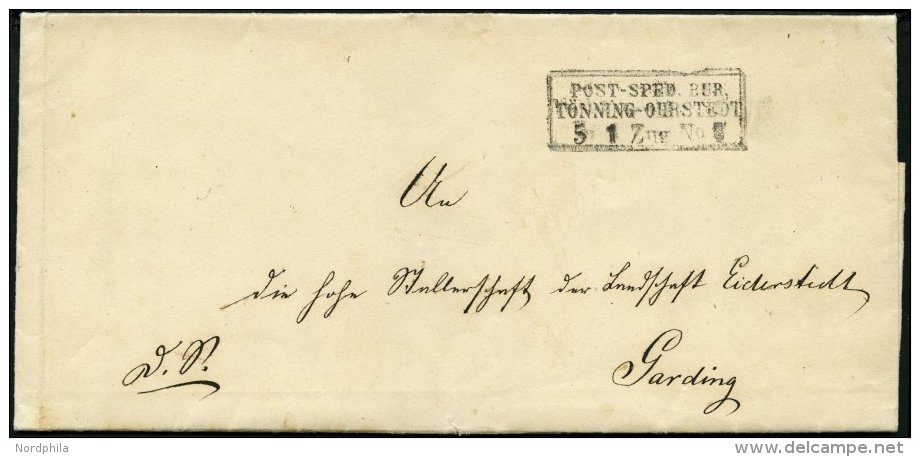 POST-SPED. BUR.
TÖNNING-OHRSTEDT
5 1 Zug No 7
An
die hohe Stallerschaft der Landschaft Eiderstedt
D. S.
Garding
Nordphila
delcampe.net